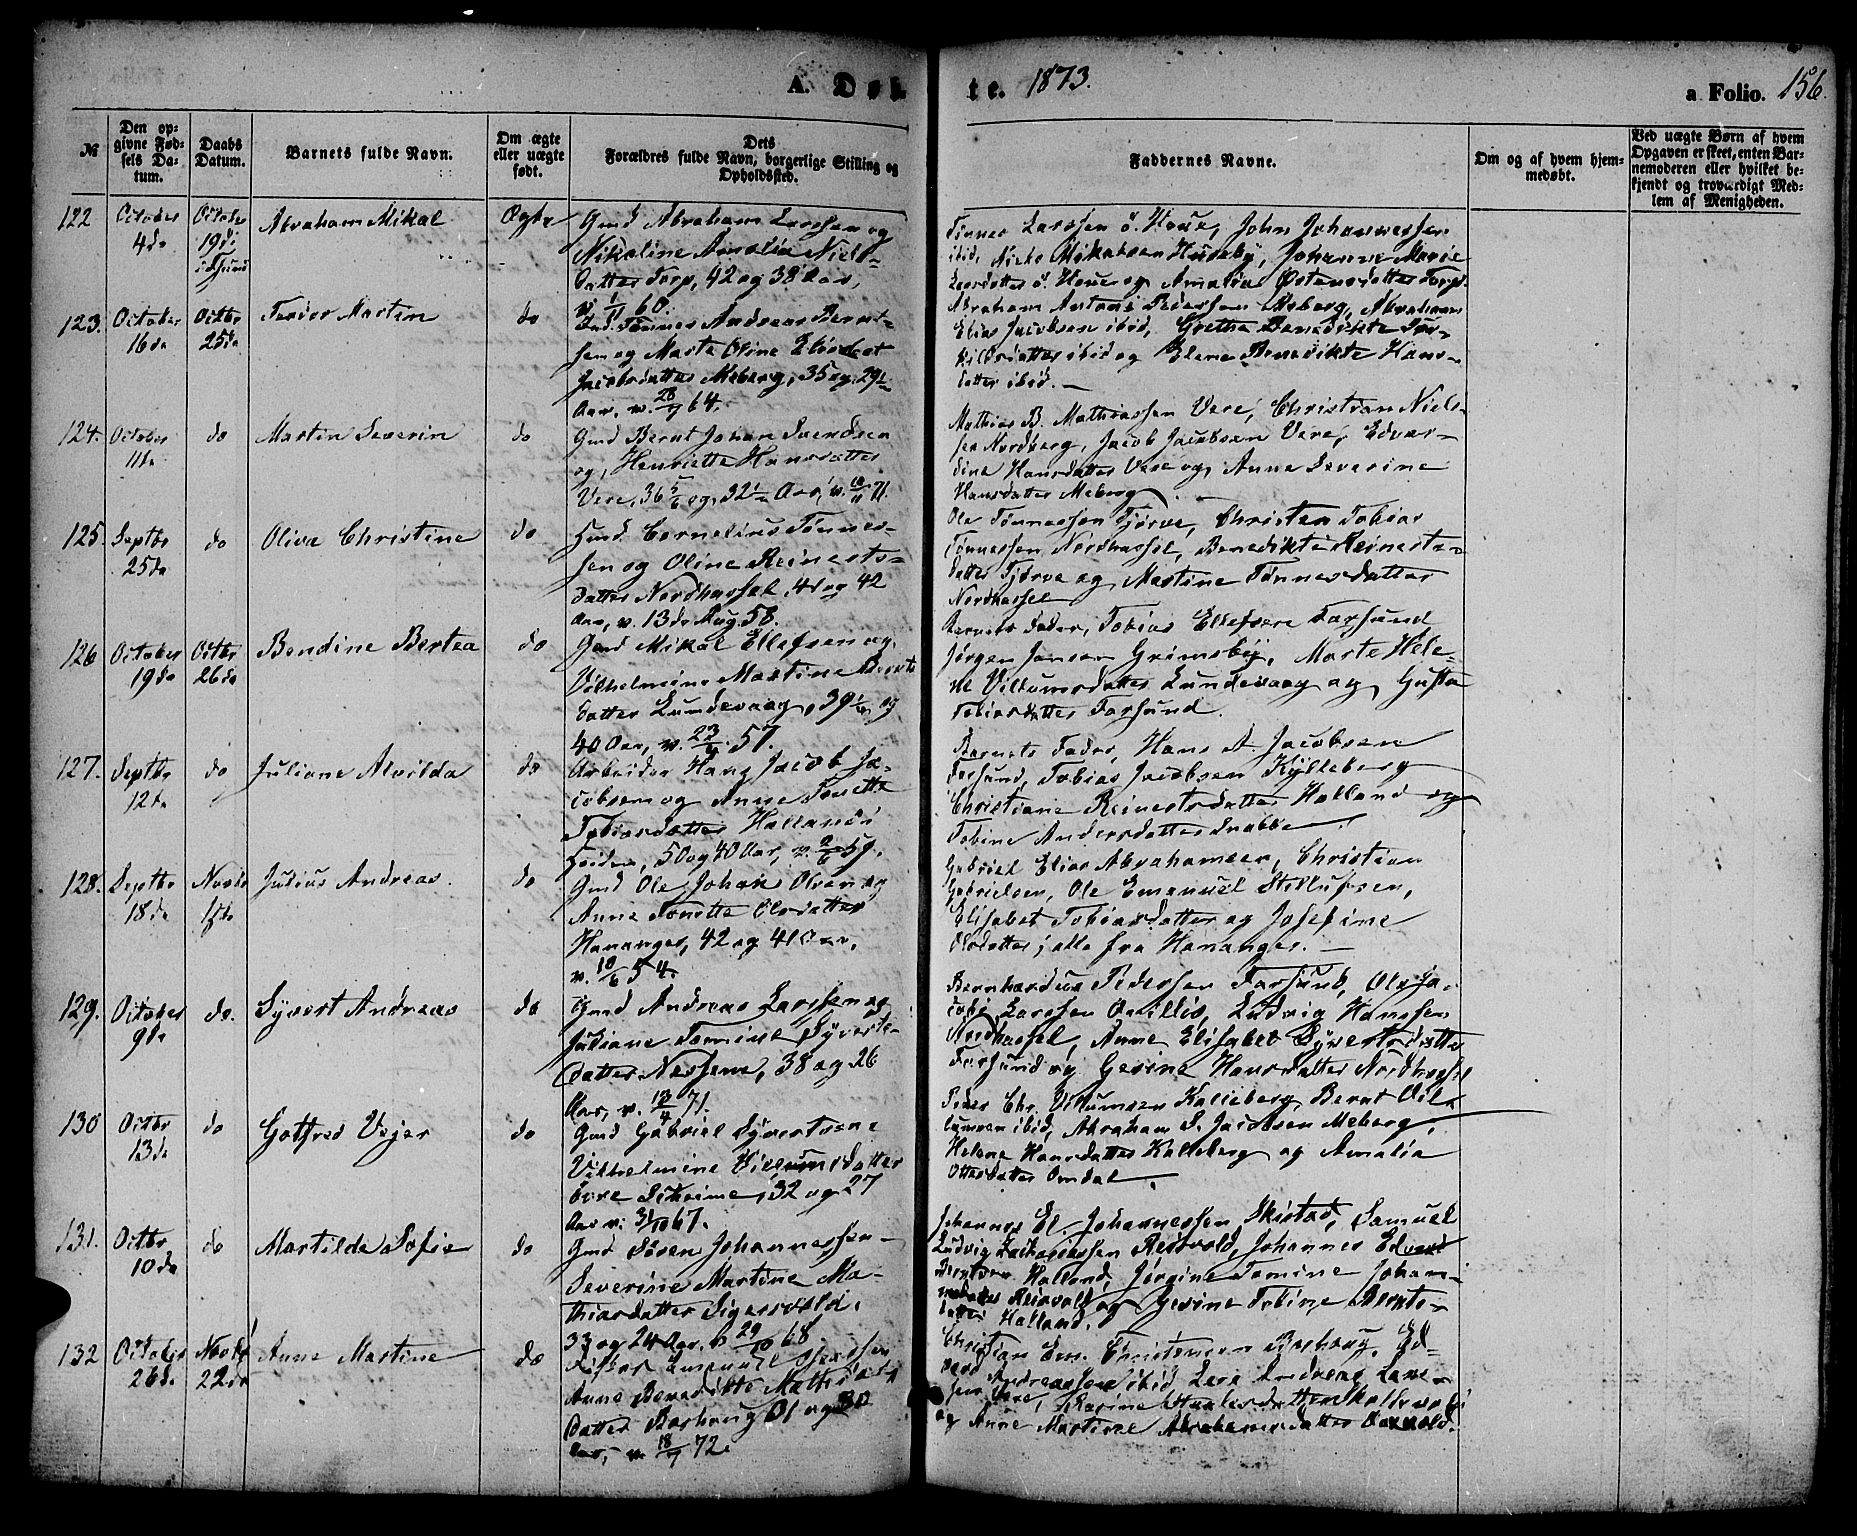 A. Døb
te. 1873.
a Folio. 156.
№
Den op-
givne Fød-
sels Da-
tum.
Daabs
Datum.
Barnets fulde Navn.
Om ægte
eller uægte
født.
Dets
Forældres fulde Navn, borgerlige Stilling og
Opholdssted.
Faddernes Navne.
Om og af hvem hjem-
medøbt.
Ved uægte Børn af hvem
Opgaven er skeet, enten Bar-
nemoderen eller hvilket be-
kjendt og troværdigt Med-
lem af Menigheden.
122
October
4de
October
19de
Abraham Mikal
Ægte
Gmd Abraham Larssen og
Nikoline Amalia Niels-
datter Torp, 42 og 38 Aar,
Tønnes Larssen ö. Houe, John Johannessen
ibid, Niels Mikalsen Huseby, Johanne Marie
Larsdatter ö. Houe og Amalia Østensdatter Torp.
123.
October
16de
Octbr
25de
Teodor Martin
do
Gmd. Tønnes Andreas Bernt-
sen og Marta Oline Elisabet
Jacobsdatter Meberg, 35 og 29½
Aar, v. 28/ 64.
Abraham Antoni Pedersen Meberg, Abraham
Elias Jacobsen ibid, Grethe Benedikte Tor-
kildsdatter ibid og Elene Benedikte Hans-
datter ibid.
124.
October
11te
do
Martin Severin
do
Gmd Bernt Johan Svendsen
og Henriette Hansdatter
Vere, 36 5/6 og 32½ Aar, v. 71.
Mathias B. Mathiassen Vere, Christian Niels-
sen Nordberg, Jacob Jacobsen Vere, Edvar-
dine Hansdatter Vere og Anne Severine
Hansdatter Meberg
125.
Septbr
25de
do
Oliva Christine
do
Gmd. Cornelius Tønnes-
sen og Oline Reinerts-
datter Nordhassel, 41 og 42
Aar, v. 13de Aug. 58.
Ole Tønnessen Tjørve, Christen Tobias
Tønnessen Nordhassel, Benedikte Reinerts-
datter Tjørve og Martine Tønnesdatter
Nordhassel
126
October
19de
Octbr
26de
Bendine Bertea
do
Gmd Mikal Ellefsen og
Vilhelmine Martine Bernts
datter Lundevaag, 39½ og
40 Aar, v. 57.
Barnets Fader, Tobias Ellefsen Farsund
Jørgen Jansen Grimsby, Marte Hele-
ne Villumsdatter Lundevaag og Gusta
Tobiasdatter Farsund.
127.
Septbr
12te
do
Juliane Alvilda
do
Arbeider Hans Jacob Ja-
cobsen og Anne Tonette
Tobiasdatter Holland i
50 og 40 Aar, v. 59.
Barnets Fader, Hans A. Jacobsen
Farsund, Tobias Jacobsen Kylleberg
Christiane Reinertsdatter Holland og
Tobine Andersdatter Snabbe
128.
Septbr
18de
Novbr
1ste
Julius Andreas.
do
Gmd Ole Johan Olsen og
Anne Tonette Olsdatter
Hananger, 42 og 41 Aar,
v. 10/6 54.
Gabriel Elias Abrahamsen, Christian
Gabrielsen, Ole Emanuel Stillufsen,
Elisabet Tobiasdatter og Josefine
Olsdatter, alle fra Hananger.
129.
October
9de
do.
Syvert Andreas
do
Gmd Andreas Larssen og
Juliane Tomine Syverts-
datter Nessene, 38 og 26
Aar, v. 13/4 71.
Bernhardus Pedersen Farsund, Ole Ja-
cobs. Larssen Qvillio, Ludvig Hanssen
Nordhassel, Anne Elisabet Syvertsdatter
Farsund og Gesine Hansdatter Nordhassel
130
Octbr
13de
do
Gotfred Vejer
do
Gmd Gabriel Syvertsen
Vilhelmine Villumsdatter
Øvre Sitheime, 32 og 27
Aar v. 31/10 67.
Peder Chr. Villumsen Kalleberg, Bernt Vil-
lumsen ibid, Abraham S. Jacobsen Meberg,
Helene Hansdatter Kalleberg og Amalia
Ottesdatter Omdal.
131.
Octbr
10de
do
Martilde Sofie
do
Gmd Søren Johannessen
Severine Martine Ma-
thiasdatter Sigersvold.
33 og 24 Aar, v. 29/10 68
Johannes El. Johannessen Skistad, Samuel
Ludvig Zachariassen Reisvold, Johannes Edvard
Berntsen Holland, Jørgine Tomine Johan-
nesdatter Reisvold og Gesine Tobine Bernts-
datter Holland.
132
October
26de
Novbr
22de
Anne Martine
do
Emanuel
Anne Benedikte Mathias
datter Borhaug 31 og 30
Aar, v. 18/ 72.
Christian Em. Christensen Borhaug, Ed-
vard Andreassen ibid, Lars Andreas Lars-
sen Vere,
og Anne Martine Abrahamsdatter